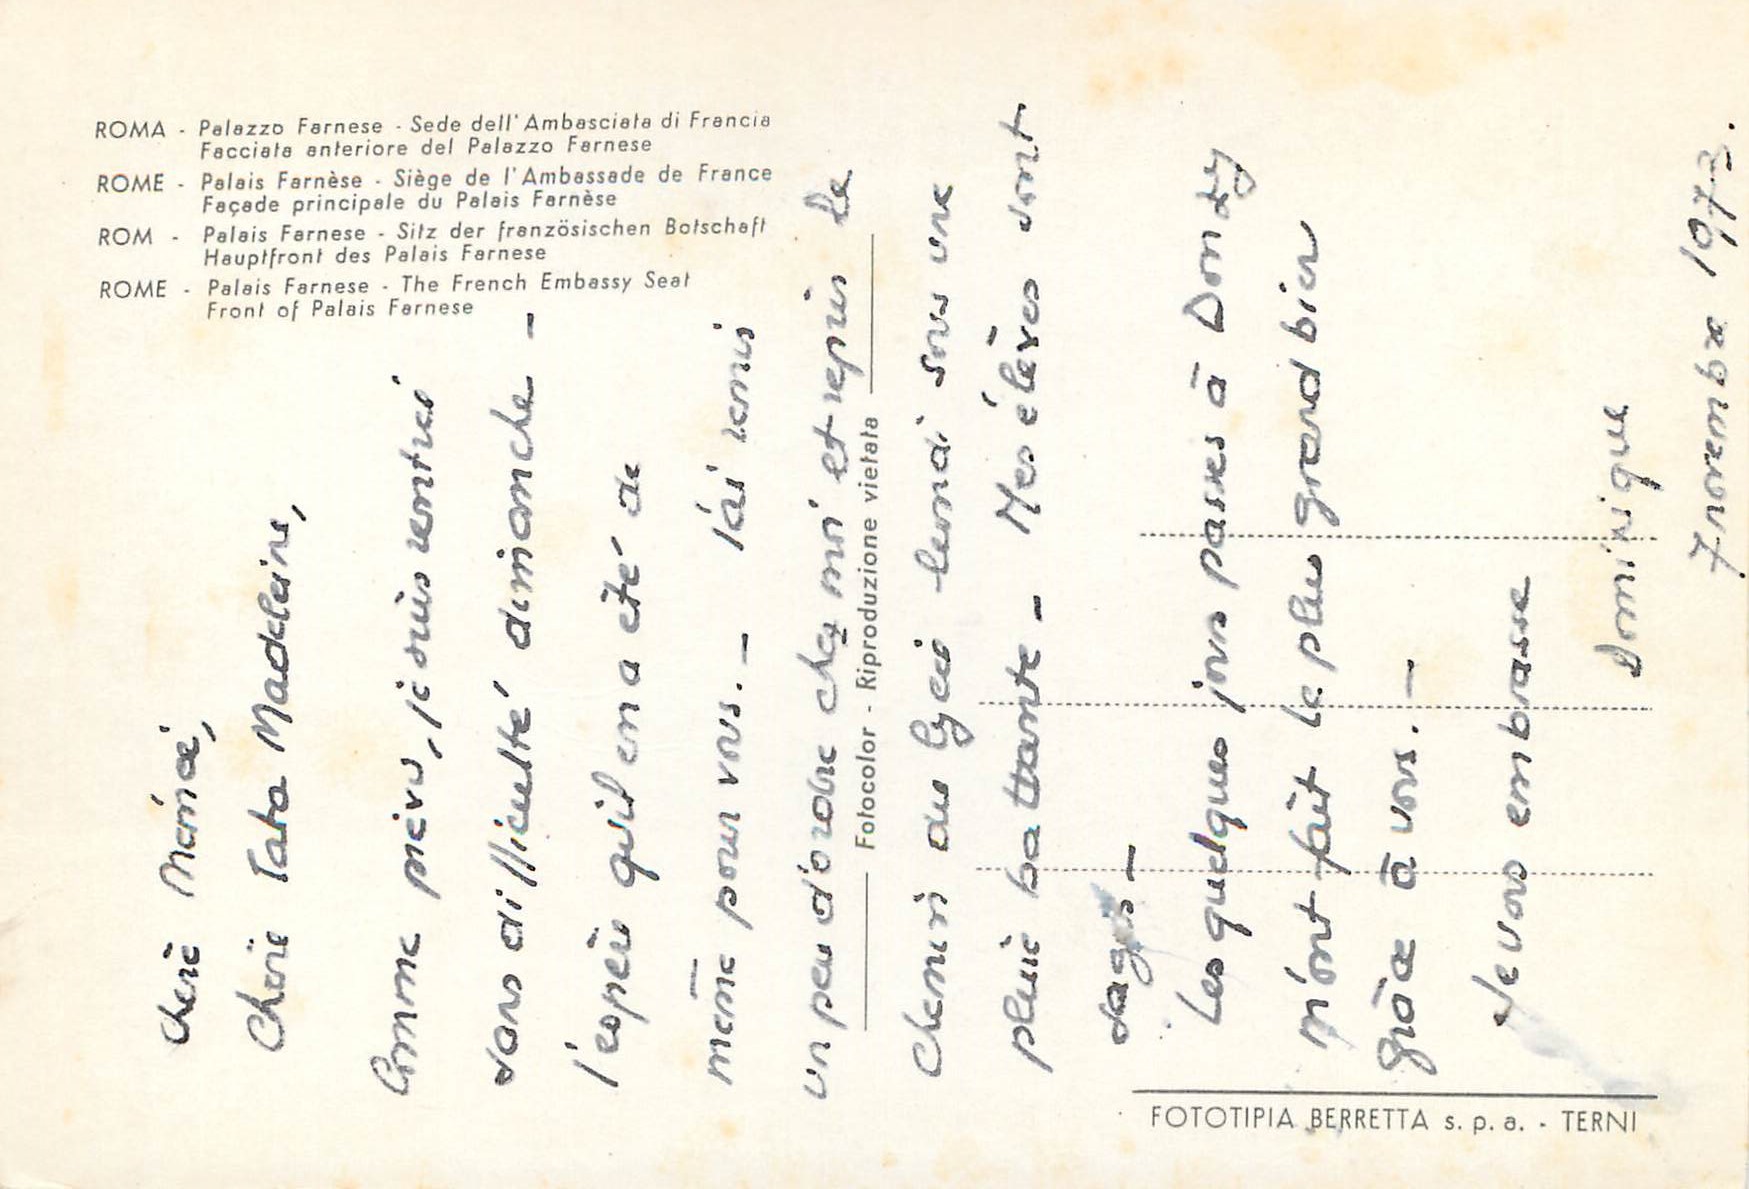 ROMA - Palazzo Farnese - Sede dell'Ambasciata di Francia
Facciata anteriore del Palazzo Farnese
ROME - Palais Farnèse - Siège de l'Ambassade de France
Façade principale du Palais Farnèse
ROM - Palais Farnese - Sitz der französischen Botschaft
Hauptfront des Palais Farnese
ROME - Palais Farnese - The French Embassy Seat
Front of Palais Farnese
Chère Mémé,
Chère Tata Madeleine,
Comme prévu, je suis rentré
sans difficulté dimanche -
J'espère qu'il en a été de
même pour vous. - J'ai remis
un peu d'ordre chez moi et repris le
chemin du lycée lundi sous une
pluie battante - Mes élèves sont
sages -
Les quelques jours passés à Donzy
m'ont fait le plus grand bien
grâce à vous. -
Je vous embrasse
Dominique
7 novembre 1973.
Fotocolor - Riproduzione vietata
FOTOTIPIA BERRETTA s.p.a. - TERNI